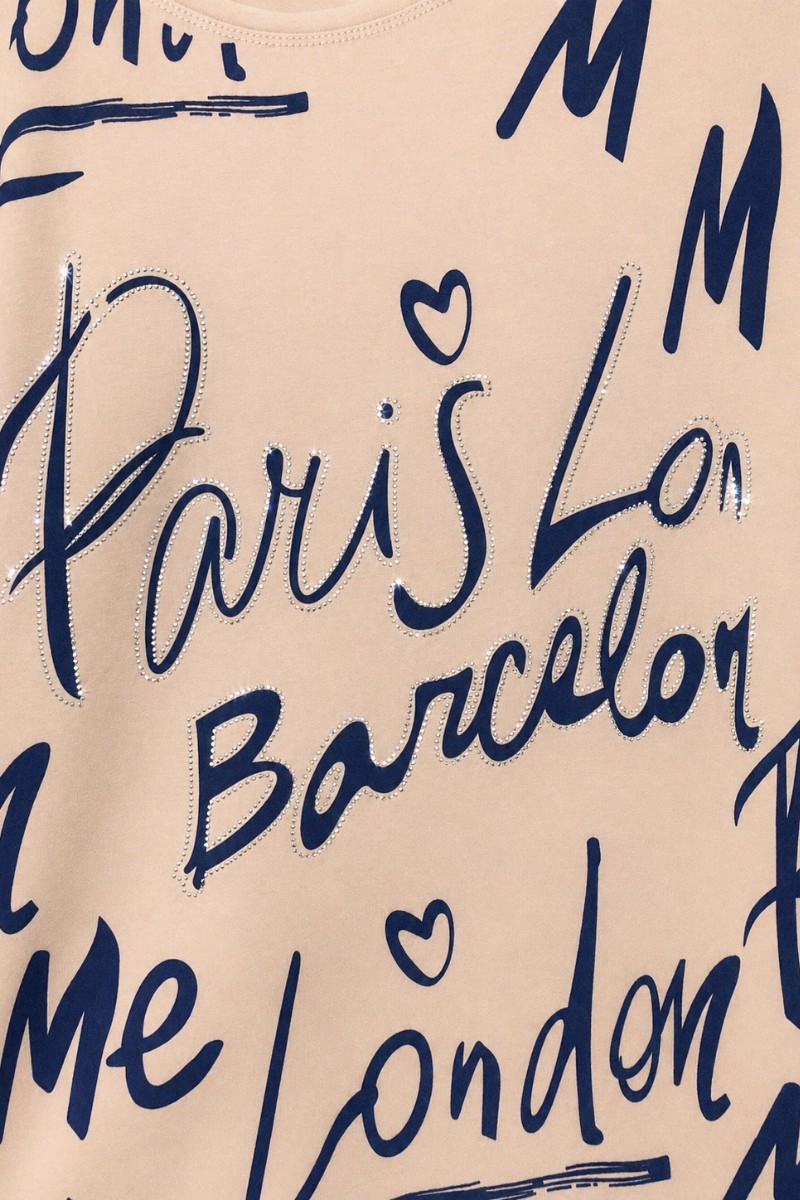 M
M
Paris Lon
Barcelon
Me
London